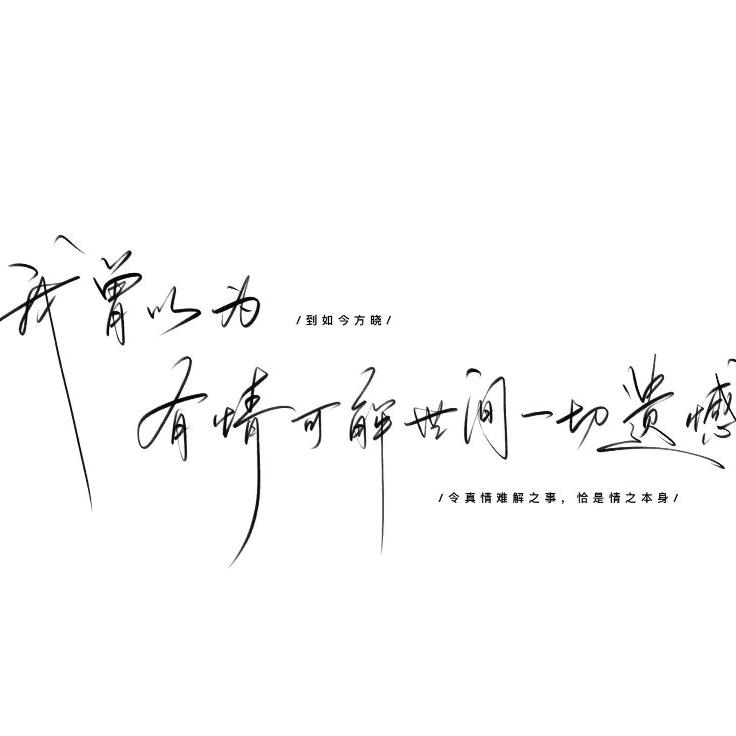 我曾以为
/到如今方晓/
有情可解世间一切遗憾
/令真情难解之事，恰是情之本身/